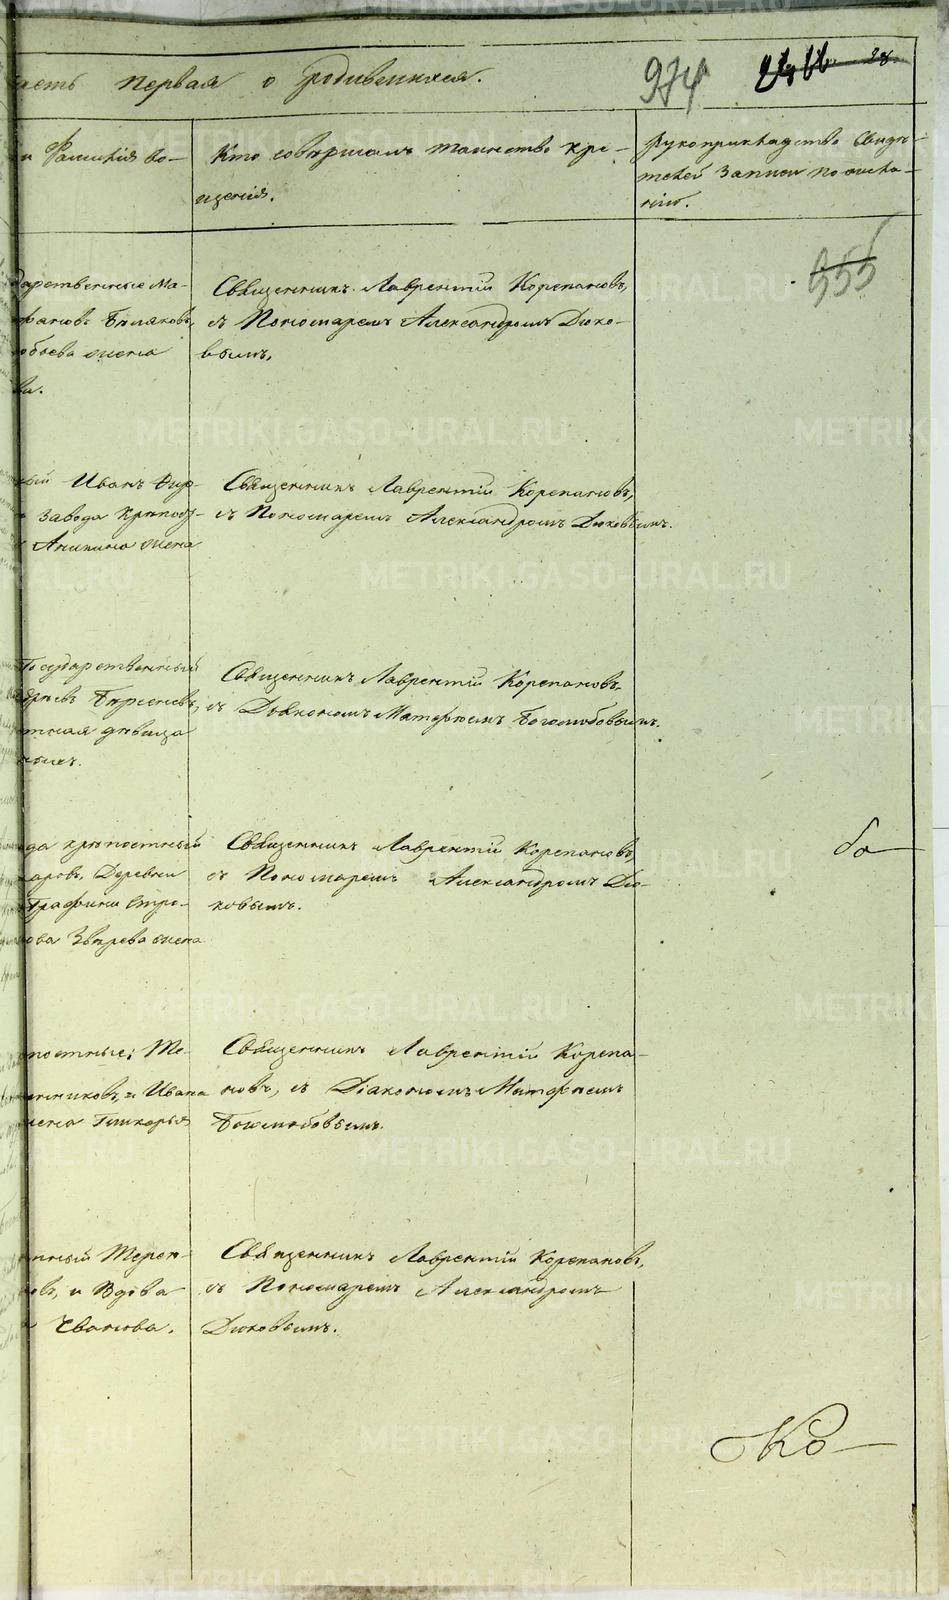 асть первая о родившихся.
974
955
и Фамилія во-
Кто совершалъ таинство кре-
щенія.
Рукоприкладство Свидѣ-
телей записи по жела-
нію.
дарственные Ма-
Бѣляковъ,
жена
ва.
Священникъ Лаврентій Корепановъ,
съ Пономаремъ Александромъ Дюко-
вымъ.
ный Иванъ Фир-
завода крѣпост-
Аникина жена
Священникъ Лаврентій Корепановъ,
съ Пономаремъ Александромъ Дюковымъ.
Государственный
тная дѣвица
Священникъ Лаврентій Корепановъ
съ Дьякономъ Матфеемъ Боголюбовымъ.
да крѣпостный
каровъ, Деревни
Графини Стро-
нова Звѣрева жена
Священникъ Лаврентій Корепановъ,
съ Пономаремъ Александромъ Дю-
ковымъ.
бо
постные; Те-
нниковъ, и Ивана
жена Гликерья
Священникъ Лаврентій Корепа-
новъ, съ Діакономъ Матфеемъ
Боголюбовымъ.
тный Терен-
овъ, и Вдова
Иванова.
Священникъ Лаврентій Корепановъ,
съ Пономаремъ Александромъ
Дюковымъ.
Ко
METRIKI.GASO-URAL.RU